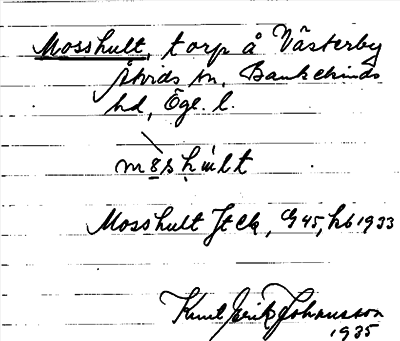 Mosshult, torp å Västerby
Åtvids sn, Bankekinds
hd, Ögl. l.
Mosshult Jt ek, G 45, hb 1933
Knut Erik Johansson
1935